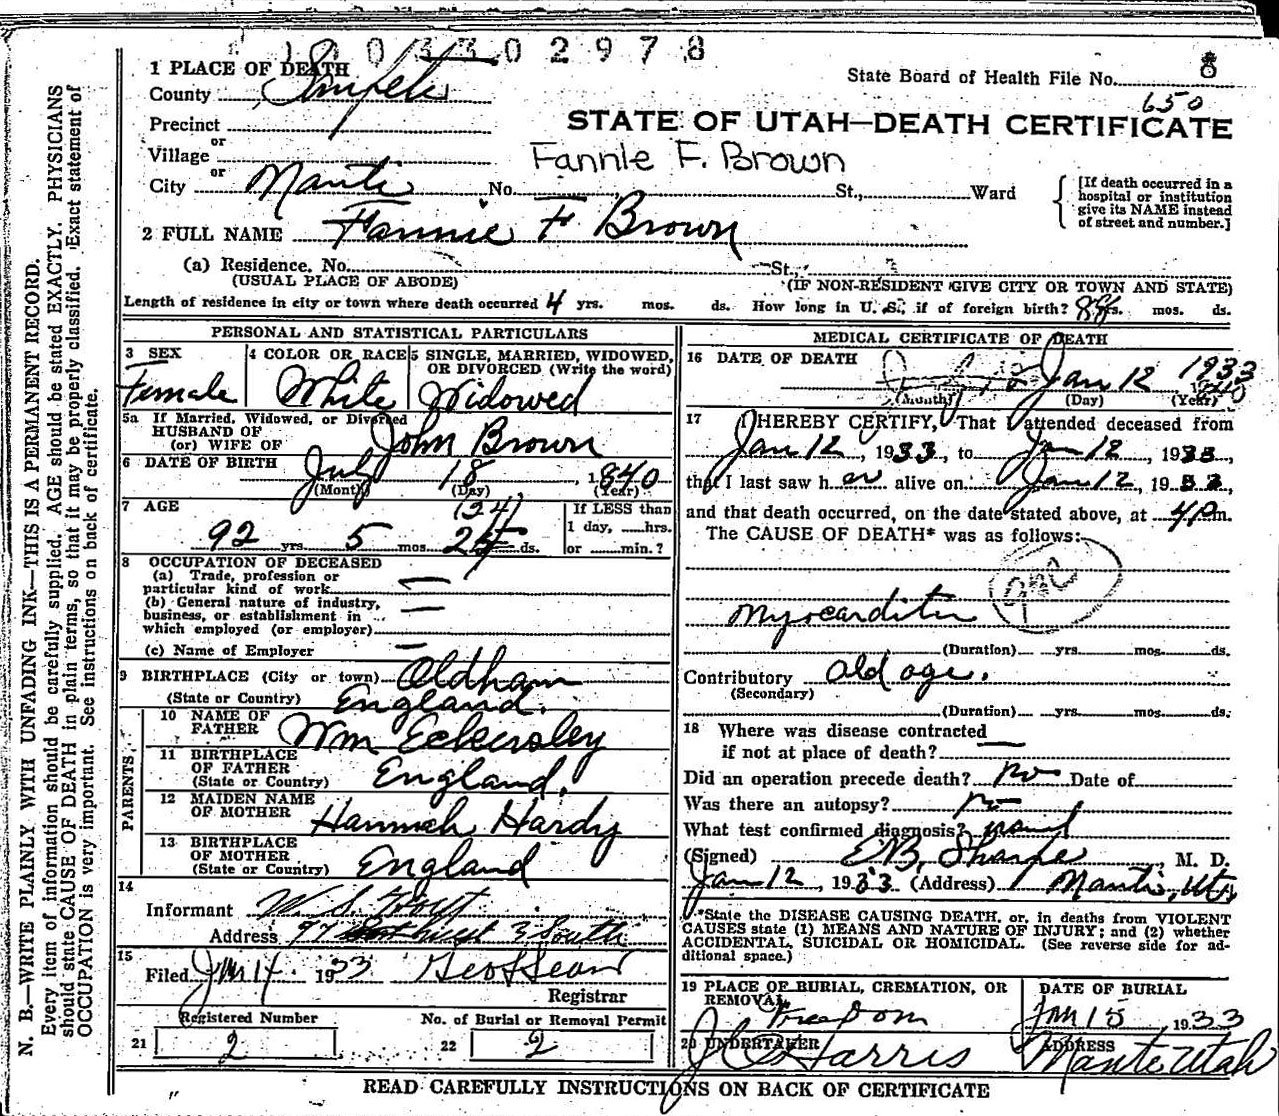 1 0 3 3 0 2 9 7 8
1 PLACE OF DEATH
State Board of Health File No. 8
County Sanpete
650
Precinct
STATE OF UTAH—DEATH CERTIFICATE
or
Village
Fannie F. Brown
or
City Manti No. St., Ward
[If death occurred in a hospital or institution give its NAME instead of street and number.]
2 FULL NAME Fannie F Brown
(a) Residence. No. St.,
(USUAL PLACE OF ABODE) (IF NON-RESIDENT GIVE CITY OR TOWN AND STATE)
Length of residence in city or town where death occurred 4 yrs. mos. ds. How long in U. S., if of foreign birth? yrs. mos. ds.
PERSONAL AND STATISTICAL PARTICULARS
3 SEX
Female
4 COLOR OR RACE
White
5 SINGLE, MARRIED, WIDOWED, OR DIVORCED (Write the word)
Widowed
5a If Married, Widowed, or Divorced
HUSBAND OF
(or) WIFE OF John Brown
6 DATE OF BIRTH July 18, 1840
(Month) (Day) (Year)
7 AGE
(24)
92 yrs. 5 mos. 25 ds.
If LESS than
1 day, hrs.
or min.?
8 OCCUPATION OF DECEASED
(a) Trade, profession or
particular kind of work —
(b) General nature of industry,
business, or establishment in —
which employed (or employer)
(c) Name of Employer —
9 BIRTHPLACE (City or town) Oldham
(State or Country) England.
PARENTS
10 NAME OF
FATHER Wm Eckersley
11 BIRTHPLACE
OF FATHER
(State or Country) England.
12 MAIDEN NAME
OF MOTHER Hannah Hardy
13 BIRTHPLACE
OF MOTHER
(State or Country) England
14
Informant W. S.
Address 97 West 3 South
15
Filed Jan 14 1933
Registrar
Registered Number
21 2
No. of Burial or Removal Permit
22 2
MEDICAL CERTIFICATE OF DEATH
16 DATE OF DEATH
Jan 12 1933
(Month) (Day) (Year)
17 I HEREBY CERTIFY, That I attended deceased from
Jan 12, 1933, to Jan 12, 1933,
that I last saw her alive on Jan 12, 1933,
and that death occurred, on the date stated above, at 4 P m.
The CAUSE OF DEATH* was as follows:
Myocarditis
(Duration) yrs. mos. ds.
Contributory old age.
(Secondary)
(Duration) yrs. mos. ds.
18 Where was disease contracted
if not at place of death? —
Did an operation precede death? no Date of
Was there an autopsy? no
What test confirmed diagnosis?
(Signed) E.B. Sharpe, M. D.
Jan 12, 1933 (Address) Manti, Ut.
*State the DISEASE CAUSING DEATH, or, in deaths from VIOLENT
CAUSES state (1) MEANS AND NATURE OF INJURY; and (2) whether
ACCIDENTAL, SUICIDAL OR HOMICIDAL. (See reverse side for ad-
ditional space.)
19 PLACE OF BURIAL, CREMATION, OR
REMOVAL
Freedom
DATE OF BURIAL
Jan 15 1933
20 UNDERTAKER
J C Harris
ADDRESS
Manti Utah
READ CAREFULLY INSTRUCTIONS ON BACK OF CERTIFICATE
N. B.—WRITE PLAINLY WITH UNFADING INK—THIS IS A PERMANENT RECORD.
Every item of information should be carefully supplied. AGE should be stated EXACTLY. PHYSICIANS
should state CAUSE OF DEATH in plain terms, so that it may be properly classified. Exact statement of
OCCUPATION is very important. See instructions on back of certificate.